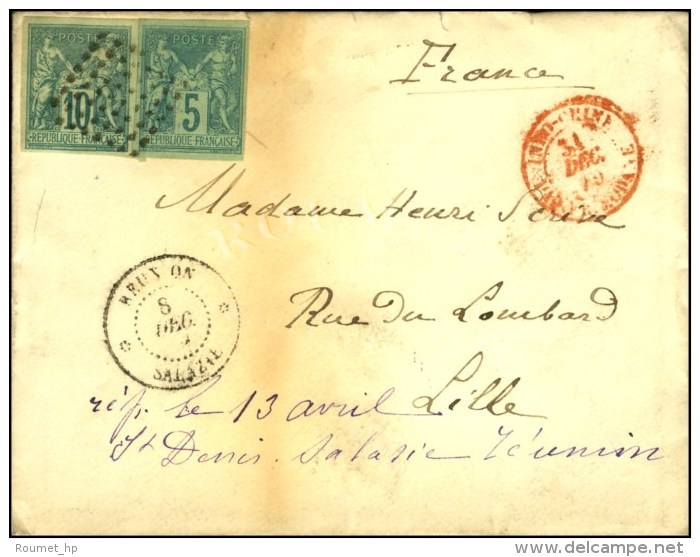 POSTES
10
REPUBLIQUE FRANÇAISE
POSTES
5
REPUBLIQUE FRANÇAISE
France
31
DEC.
79
Madame Henri Scrive
REUNION
8
DEC.
SALAZIE
Rue Du Lombard
Lille
rép. le 13 avril
St Denis Salasie Réunion
Roumet_hp
delcampe.net